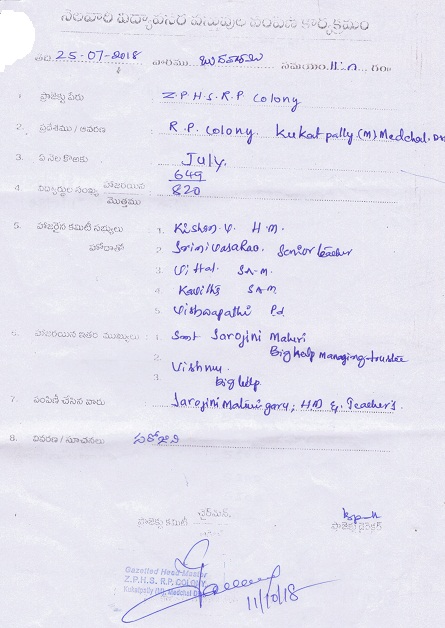 నెలవారి విద్యావసర వస్తువుల పంపిణి కార్యక్రమం
తేది 25-07-2018 వారము బుధవారము సమయం 11-
1. ప్రాజెక్టు పేరు : Z.P.H.S. R.P Colony
2. ప్రదేశము / ఆవరణ : R.P. Colony. Kukatpally (M) Medchal. Dt
3. ఏ నెల కొఱకు : July.
4. విద్యార్థుల సంఖ్య హాజరయిన 649
మొత్తము 820
5. హాజరైన కమిటీ సభ్యులు : 1. Kishan. V. H.M.
హోదాతో 2. Srinivasa Rao. Senior teacher
3. Vittal. S.A-M.
4. Kavitha S.A-M
5. Vishwapathi P.d
6. హాజరయిన ఇతర ముఖ్యులు : 1. Smt Sarojini Maturi
2. Big help managing-trustee
Vishnu.
3. Big help.
7. పంపిణీ చేసిన వారు : Sarojini Maturi garu, HM & Teachers.
8. వివరణ / సూచనలు : సరోజిని
ఛైర్మన్,
ప్రాజెక్టు కమిటీ
ప్రాజెక్టు డైరెక్టర్
Gazetted Head Master
Z.P.H.S. R.P. COLONY
Kukatpally (M), Medchal Dist
11/10/18